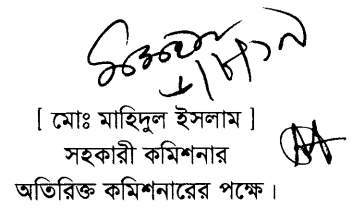 [ মোঃ মাহিদুল ইসলাম ]
সহকারী কমিশনার
অতিরিক্ত কমিশনারের পক্ষে।